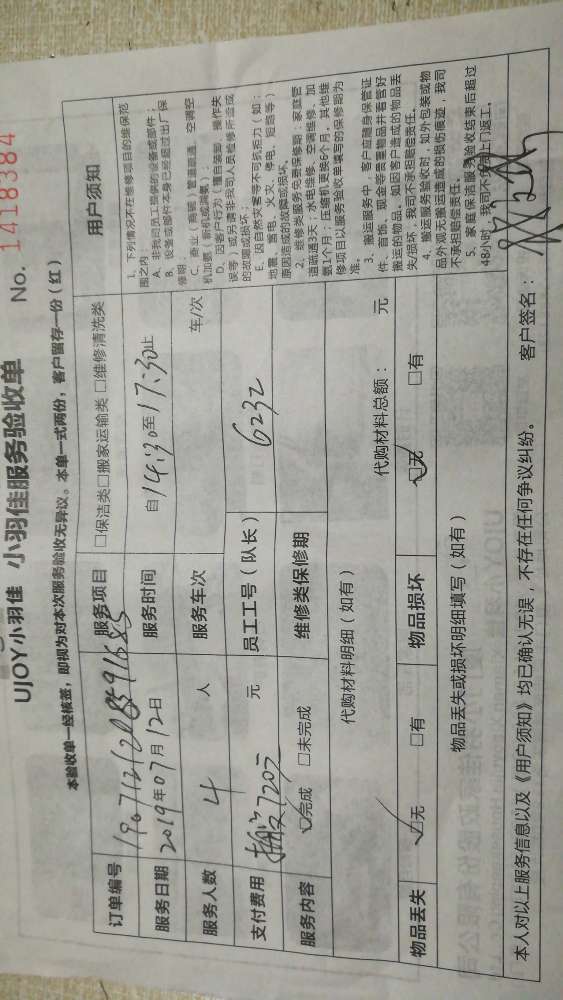 UJOY小羽佳 小羽佳服务验收单 No. 1418384
本验收单一经核签，即视为对本次服务验收无异议。本单一式两份，客户留存一份（红）
订单编号
服务项目 □保洁类□搬家运输类 □维修清洗类
服务日期 2019年07月12日
服务时间 自14:30至17:30止
服务人数 4 人
服务车次 车/次
支付费用 720元 元
员工工号（队长） 6232
服务内容 ☑完成 □未完成
维修类保修期
代购材料明细（如有） 代购材料总额： 元
物品丢失 ☑无 □有
物品损坏 ☑无 □有
物品丢失或损坏明细填写（如有）
用户须知
1、下列情况不在维修项目的维保范
围之内
A、非我司员工提供的设备或部件；
B、设备或部件本身已经超过出厂保
修期；
C、商业（商铺）管道疏通、空调空
机加氨（新机或漏氨）。
D、因客户行为（擅自装卸、操作失
误等）或另请非我司人员检修所造成
的故障或损坏；
E、因自然灾害等不可抗拒力（如：
地震、雷电、火灾、停电、短路等）
原因造成的故障或损坏。
2、维修类服务免费保修期：家庭管
道疏通3天；水电维修、空调维修、加
氨1个月；压缩机更换6个月，其他维
修项目以服务验收单填写的保修期为
准。
3、搬运服务中，客户应随身保管证
件、首饰、现金等贵重物品并看管好
搬运的物品，如因客户造成的物品丢
失/损坏，我司不承担赔偿责任。
4、搬运服务验收时，如外包装或物
品外观无搬运造成的损伤痕迹，我司
不承担赔偿责任。
5、家庭保洁服务验收结束后超过
48小时，我司不负责上门返工。
本人对以上服务信息以及《用户须知》均已确认无误，不存在任何争议纠纷。 客户签名：